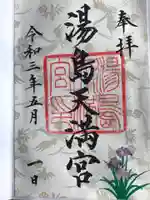 奉拝
湯島天満宮
令和三年五月一日